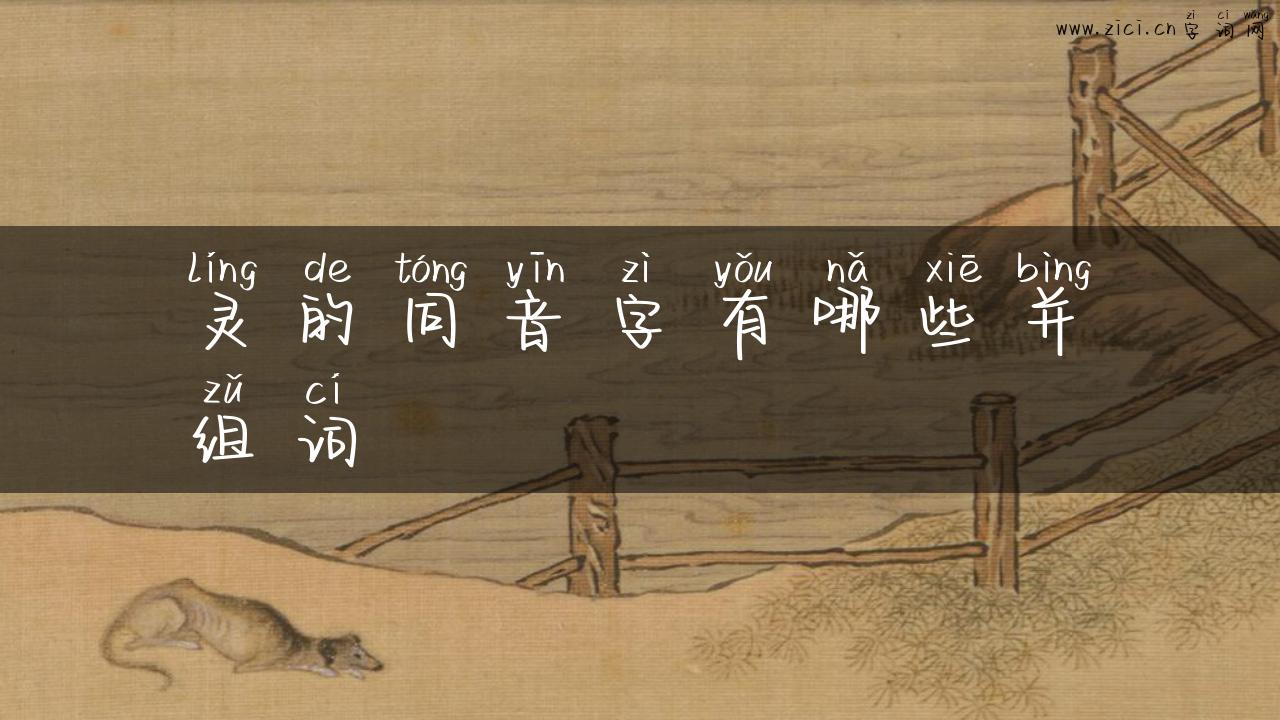 zì cí wǎng
www.zici.cn字词网
líng de tóng yīn zì yǒu nǎ xiē bìng
灵的同音字有哪些并
zǔ cí
组词